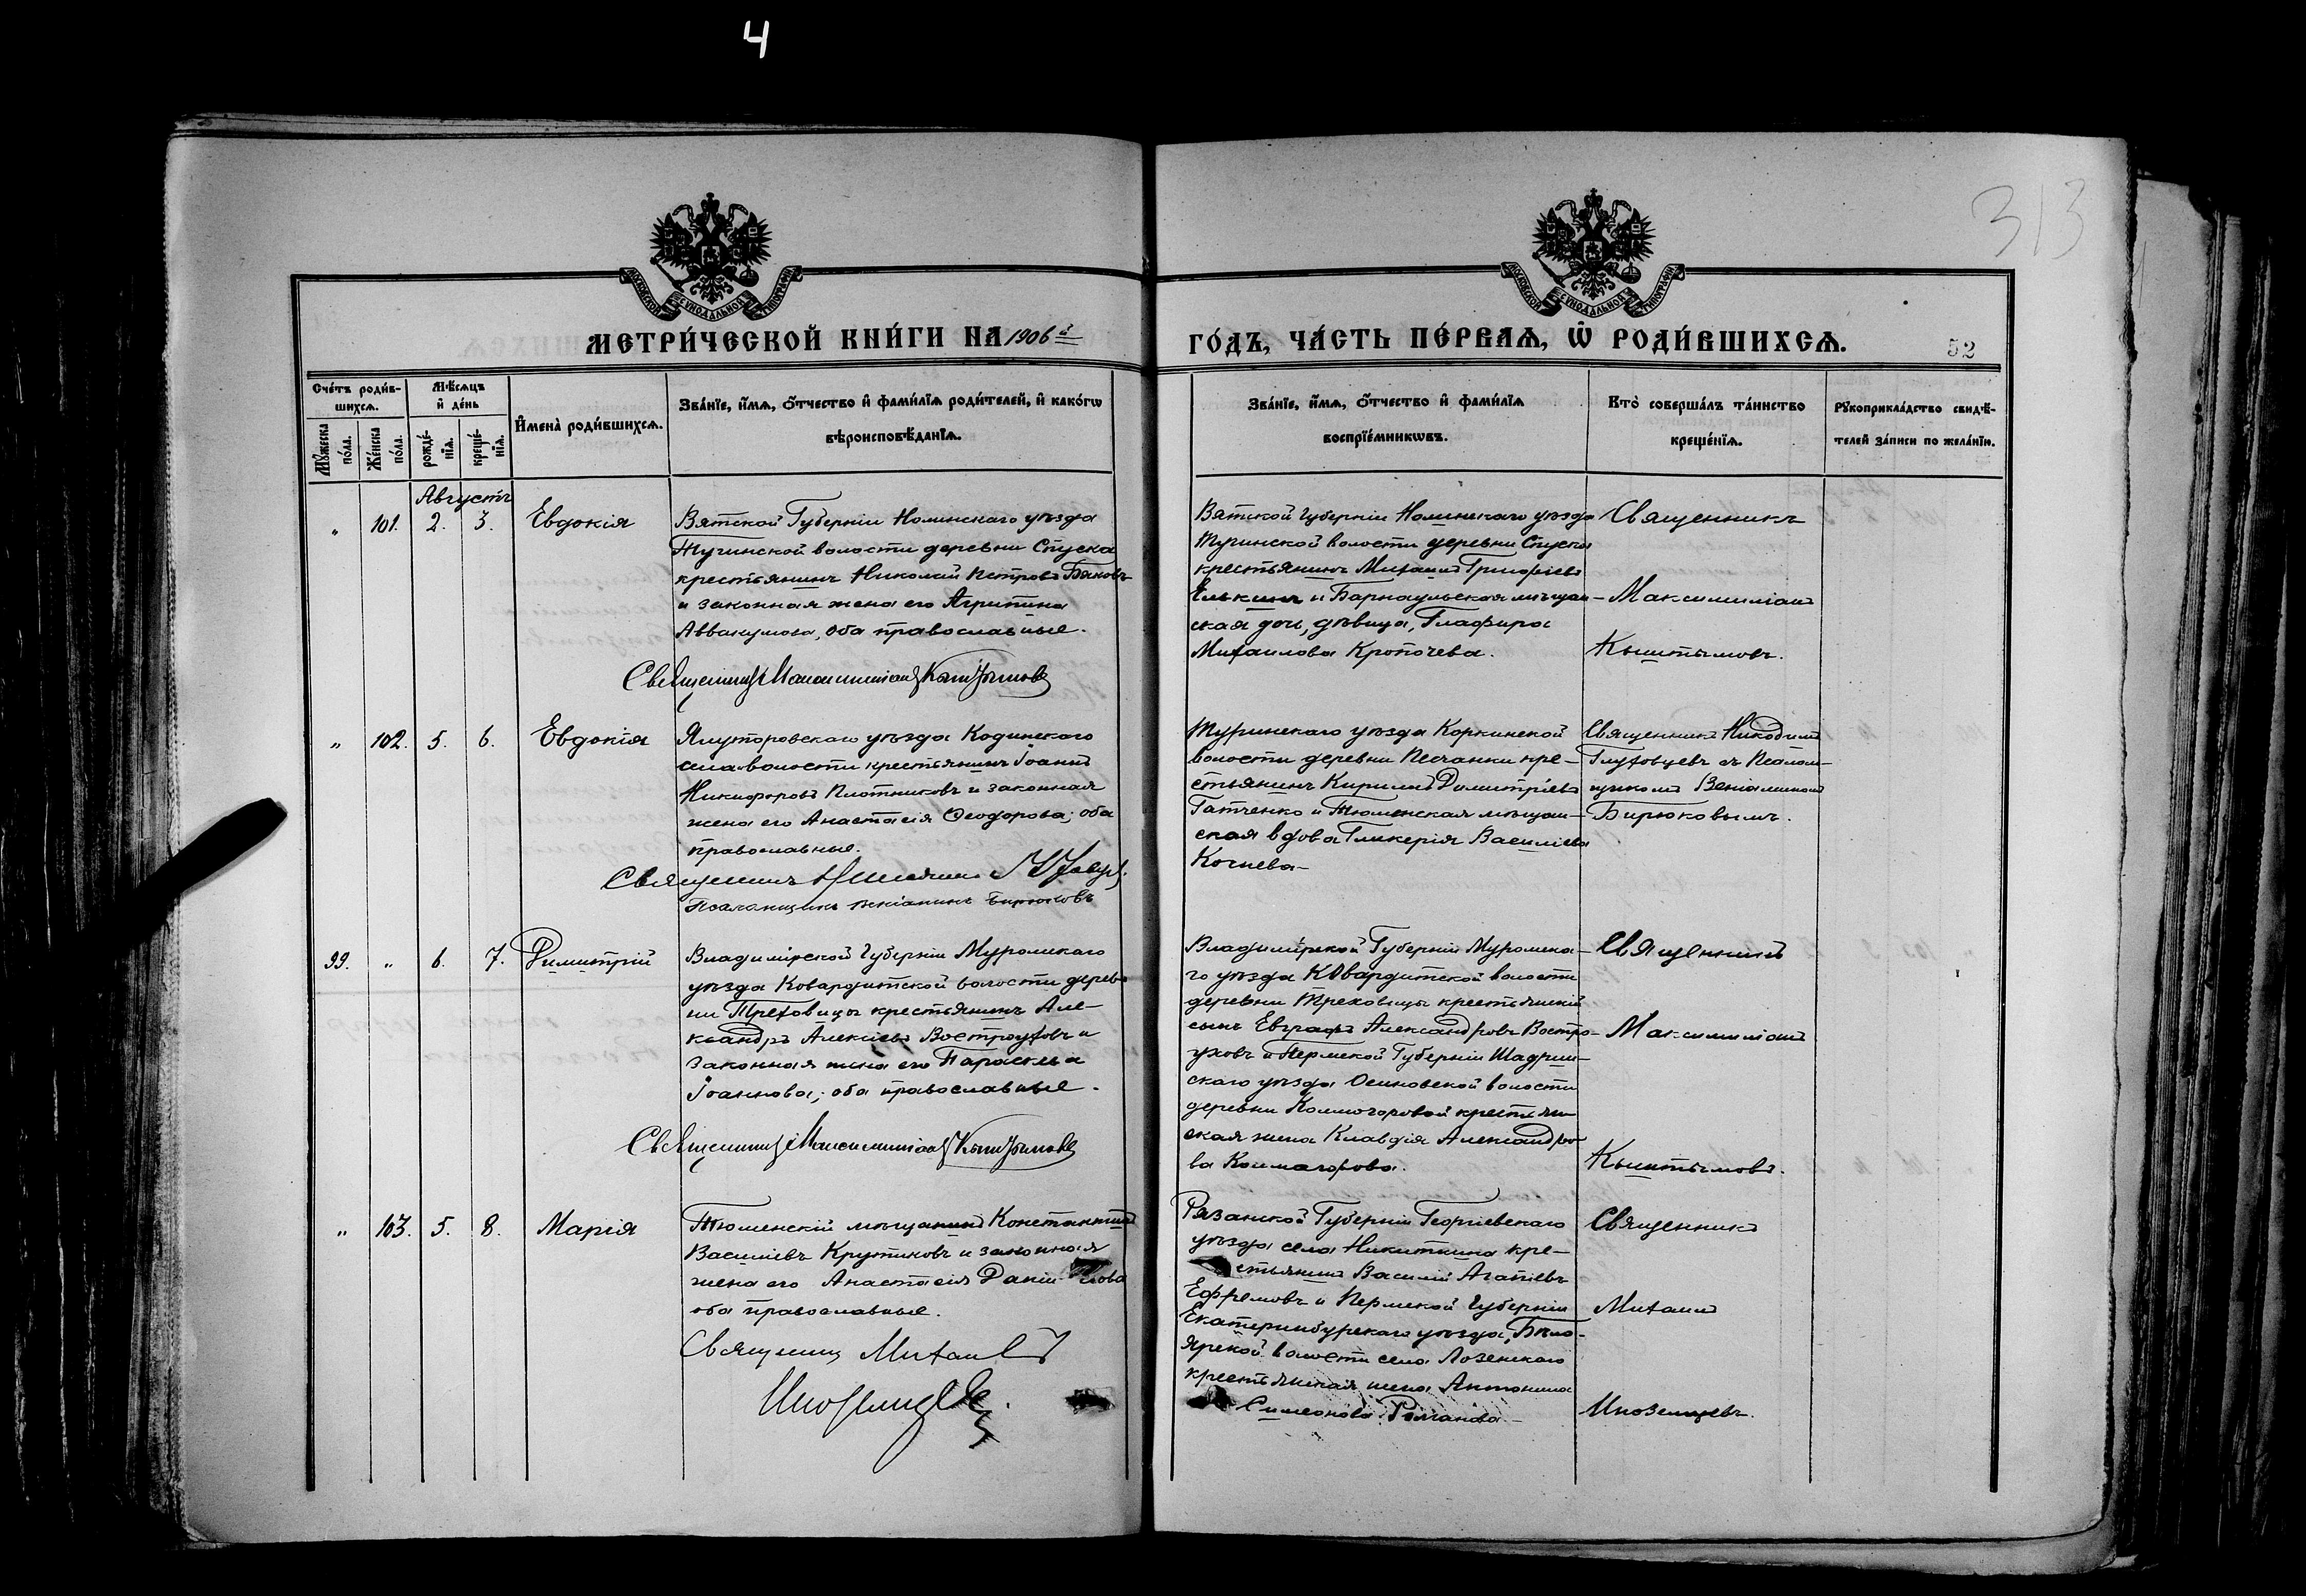 4
313
МОСКОВСКОЙ СѴНОДАЛЬНОЙ ТИПОГРАФІИ
МОСКОВСКОЙ СѴНОДАЛЬНОЙ ТИПОГРАФІИ
МЕТРИ́ЧЕСКОЙ КНИ́ГИ НА 1906й
ГО́ДЪ, ЧА́СТЬ ПЕ́РВАѦ, Ѡ҆ РОДИ́ВШИХСѦ.
52
Сче́тъ роди́в-
шихсѧ.
Мꙋжеска по́ла.
Же́нска по́ла.
Мѣ́сѧцъ
и҆ де́нь
рожде́-
нїѧ.
креще́-
нїѧ.
И҆мена̀ роди́вшихсѧ.
Зва́нїе, и҆́мѧ, ѻ҆́тчество и҆ фами́лїѧ роди́телей, и҆ како́гѡ
вѣроисповѣ́данїѧ.
Зва́нїе, и҆́мѧ, ѻ҆́тчество и҆ фами́лїѧ
воспрїе́мникѡвъ.
Кто̀ соверша́лъ та́инство
креще́нїѧ.
Рꙋкоприкла́дство свидѣ́-
телей за́писи по жела́нїю.
Августъ
„ 101. 2. 3. Евдокія
Вятской Губерніи Нолинскаго уѣзда
Тужинской волости деревни Спуска
крестьянинъ Николай Петровъ Бяковъ
и законная жена его Агрипина
Аввакумова, оба православные.
Священникъ Максимиліанъ Кыштымовъ
Вятской губерніи Нолинскаго уѣзда
волости деревни Спуска
крестьянинъ Михаилъ Григоріевъ
Елькинъ и Барнаульская мѣщан-
ская дочь, дѣвица, Глафира
Михаилова Кропочева.
Священникъ
Максимиліанъ
Кыштымовъ.
„ 102. 5. 6. Евдокія
Ялуторовскаго уѣзда Кодинского
села волости крестьянинъ Іоаннъ
Никифоровъ Плотниковъ и законная
жена его Анастасія Ѳеодорова; оба
православные.
Священникъ
Псаломщикъ Веніаминъ Бирюковъ
Туринскаго уѣзда Коркинской
волости деревни Песчанки кре-
стьянинъ Кириллъ Димитріевъ
Гатченко и Тюменская мѣщан-
ская вдова Гликерія Василіева
Священникъ Никодимъ
Глуховцевъ съ Псалом-
щикомъ Веніаминомъ
Бирюковымъ.
99. „ 6. 7. Димитрій
Владимірской Губерніи Муромскаго
уѣзда Ковардитской волости дерев-
ни Треховицы крестьянинъ Але-
ксандръ Алексіевъ Востроуховъ и
законная жена его Параскева
Іоаннова; оба православные.
Священникъ Максимиліанъ Кыштымовъ
Владимірской Губерніи Муромска-
го уѣзда Ковардитской волости
деревни Треховицы крестьянскій
сынъ Евграфъ Александровъ Востро-
уховъ и Пермской Губерніи Шадрин-
скаго уѣзда Осиновской волости
деревни Колмогоровой крестьян-
ская жена Клавдія Александро-
ва Колмагорова.
Священникъ
Максимиліанъ
Кыштымовъ.
„ 103. 5. 8. Марія
Тюменскій мѣщанинъ Константинъ
Василіевъ Крутиковъ и законная
жена его Анастасія Даніилова
оба православные.
Священникъ Михаилъ
Иноземцевъ.
Рязанской Губерніи Георгіевскаго
уѣзда села Никиткина кре-
стьянинъ Василій Агапіевъ
Ефремовъ и Пермской Губерніи
Екатеринбургскаго уѣзда, Бѣло-
ярской волости села Лозенскаго
крестьянская жена Антонина
Симеонова Романова
Священникъ
Михаилъ
Иноземцевъ.